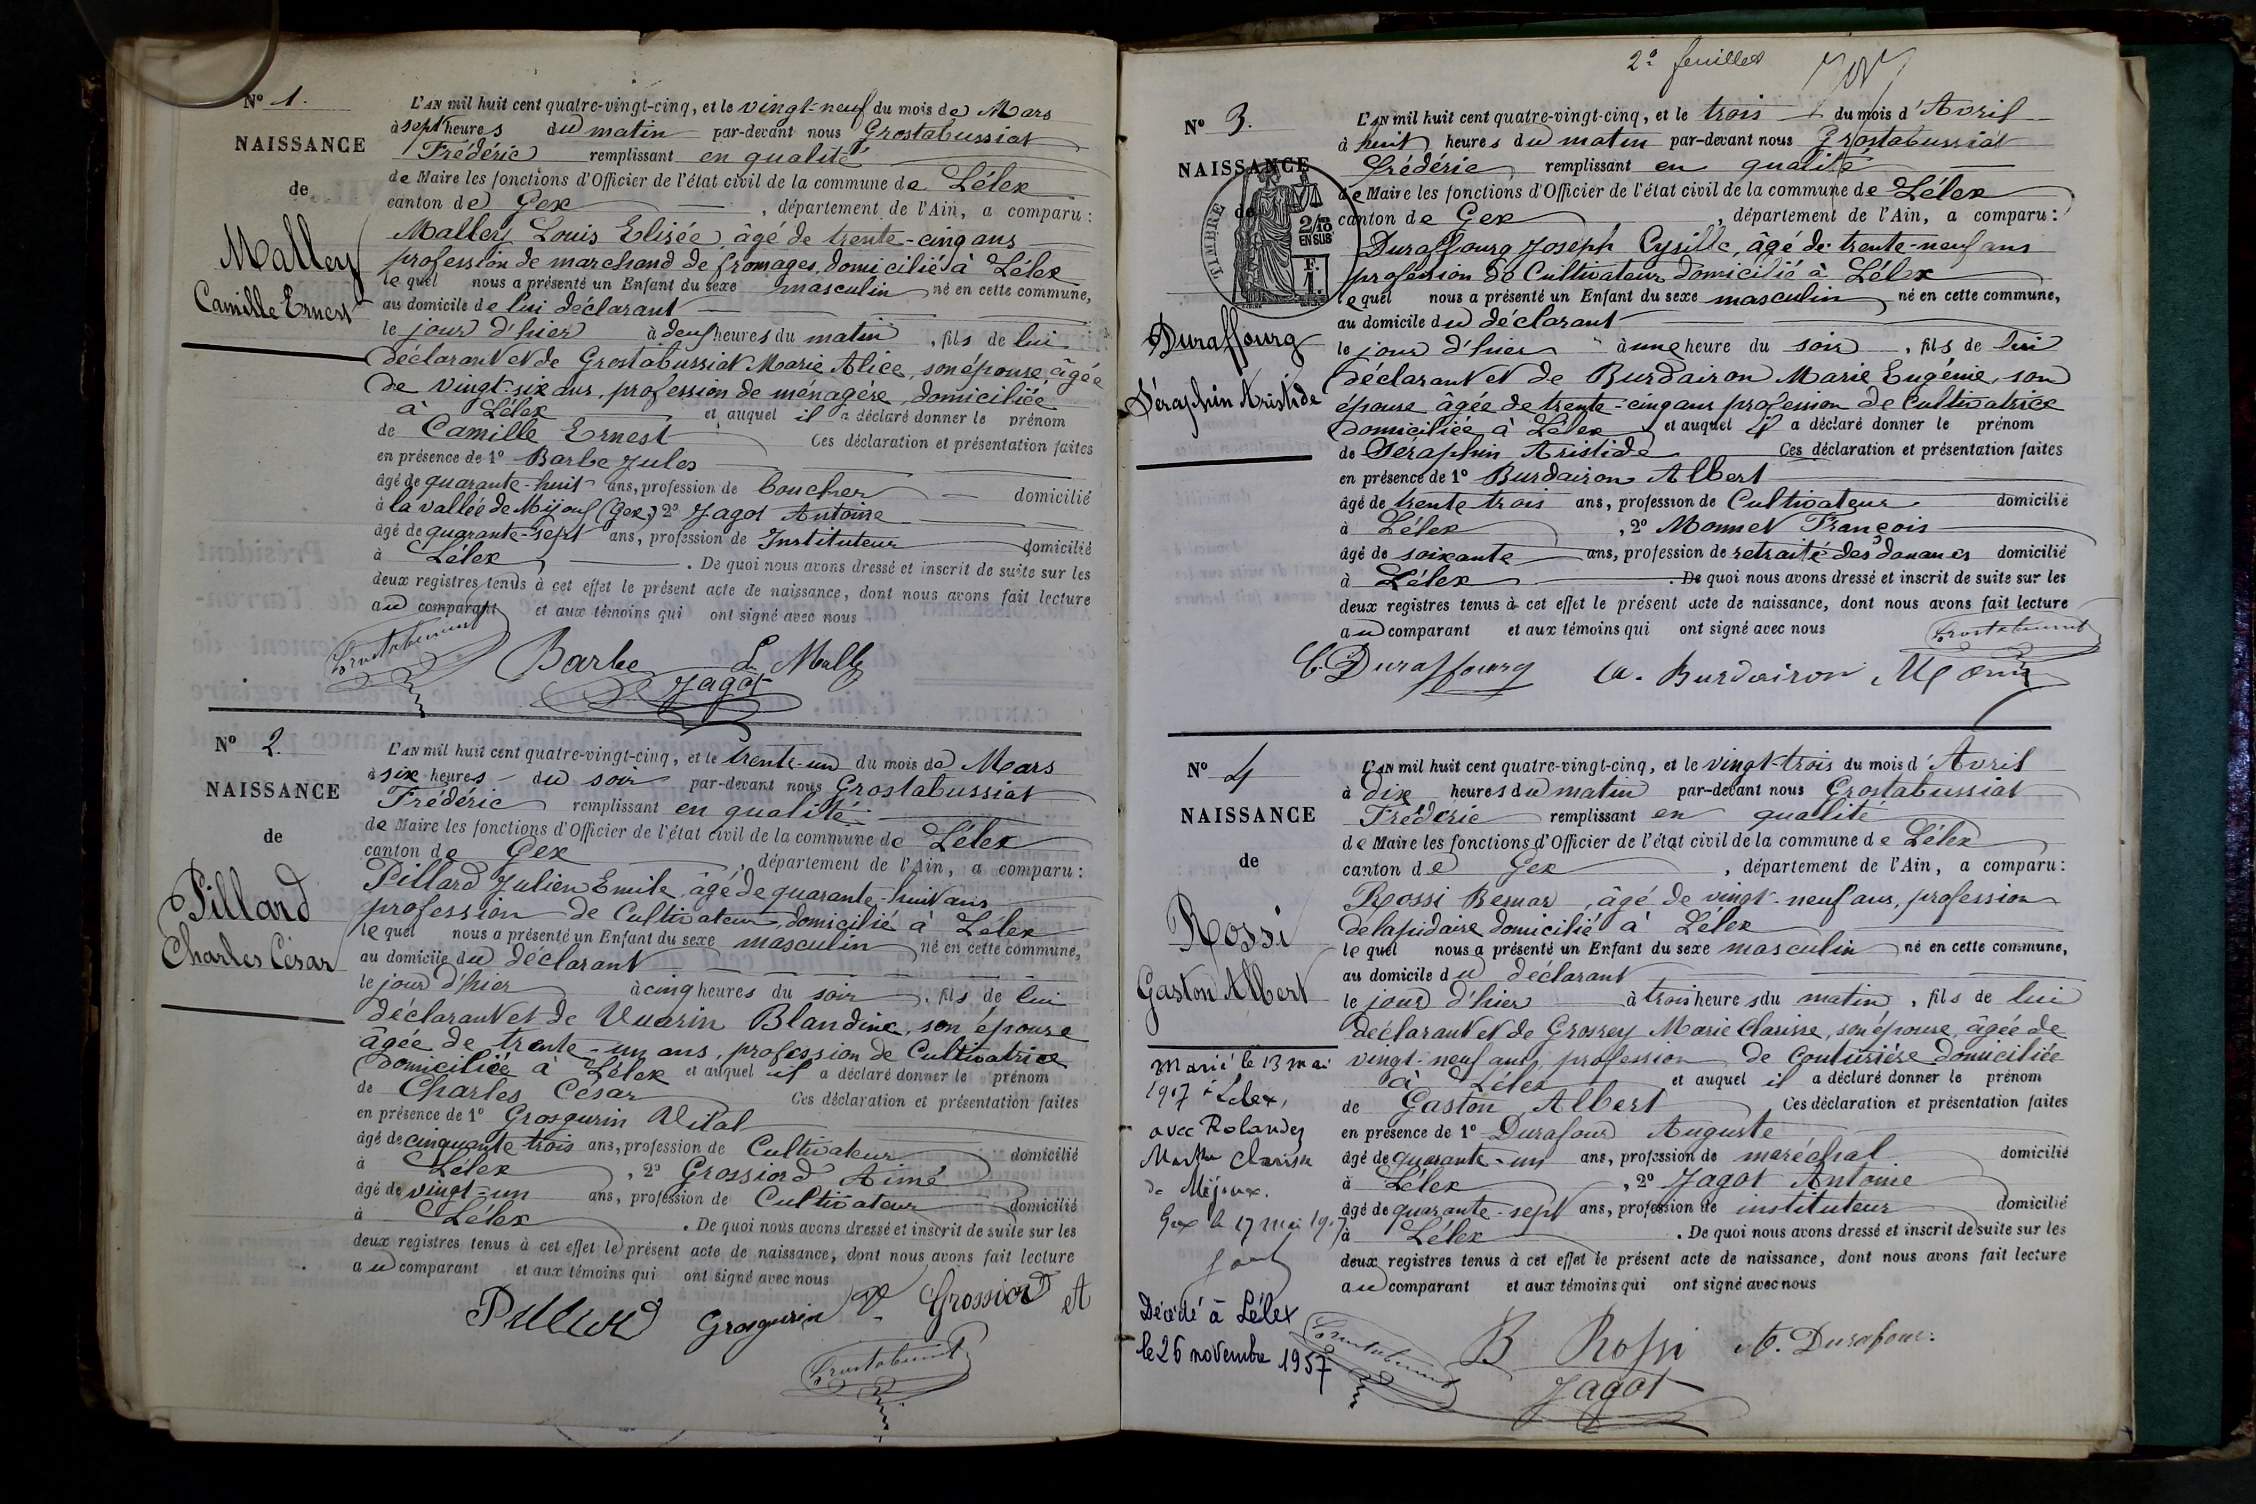 Nº 1.
NAISSANCE
de
Malley
Camille Ernest
L'AN mil huit cent quatre-vingt-cinq, et le vingt-neuf du mois de Mars
à sept heures du matin par-devant nous Grostabussiat
Frédéric remplissant en qualité
de Maire les fonctions d'Officier de l'état civil de la commune de Lélex
canton de Gex, département de l'Ain, a comparu:
Malley Louis Elisée, âgé de trente-cinq ans
profession de marchand de fromages, domicilié à Lélex
lequel nous a présenté un Enfant du sexe masculin né en cette commune,
au domicile de lui déclarant
le jour d'hier à deux heures du matin, fils de lui
déclarant et de Grostabussiat Marie Alice, son épouse âgée
de vingt-six ans, profession de ménagère, domiciliée
à Lélex et auquel il a déclaré donner le prénom
de Camille Ernest Ces déclaration et présentation faites
en présence de 1º Barbe Jules
âgé de quarante-huit ans, profession de boucher domicilié
à la vallée de Mijoux (Gex,) 2º Jagot Antoine
âgé de quarante-sept ans, profession de Instituteur domicilié
à Lélex. De quoi nous avons dressé et inscrit de suite sur les
deux registres tenus à cet effet le présent acte de naissance, dont nous avons fait lecture
au comparant et aux témoins qui ont signé avec nous
Grostabussiat Barbe L. Malley
Jagot
Nº 2.
NAISSANCE
de
Pillard
Charles César
L'AN mil huit cent quatre-vingt-cinq, et le trente-un du mois de Mars
à six heures du soir par-devant nous Grostabussiat
Frédéric remplissant en qualité
de Maire les fonctions d'Officier de l'état civil de la commune de Lélex
canton de Gex, département de l'Ain, a comparu:
Pillard Julien Emile, âgé de quarante-huit ans
profession de Cultivateur, domicilié à Lélex
lequel nous a présenté un Enfant du sexe masculin né en cette commune,
au domicile du déclarant
le jour d'hier à cinq heures du soir, fils de lui
déclarant et de Vuarin Blandine, son épouse
âgée de trente-un ans, profession de Cultivatrice
domiciliée à Lélex et auquel il a déclaré donner le prénom
de Charles César Ces déclaration et présentation faites
en présence de 1º Grosgurin Vital
âgé de cinquante trois ans, profession de Cultivateur domicilié
à Lélex, 2º Grossiord Aimé
âgé de vingt-un ans, profession de Cultivateur domicilié
à Lélex. De quoi nous avons dressé et inscrit de suite sur les
deux registres tenus à cet effet le présent acte de naissance, dont nous avons fait lecture
au comparant et aux témoins qui ont signé avec nous
Pillard Grosgurin V. Grossiord A
Grostabussiat
2e feuillet
Nº 3.
NAISSANCE
de
TIMBRE
2/10
EN SUS
F.
1
Duraffourg
Séraphin Aristide
L'AN mil huit cent quatre-vingt-cinq, et le trois du mois d'Avril
à huit heures du matin par-devant nous Grostabussiat
Frédéric remplissant en qualité
de Maire les fonctions d'Officier de l'état civil de la commune de Lélex
canton de Gex, département de l'Ain, a comparu:
Duraffourg Joseph Cyrille, âgé de trente-neuf ans
profession de Cultivateur domicilié à Lélex
lequel nous a présenté un Enfant du sexe masculin né en cette commune,
au domicile du déclarant
le jour d'hier à une heure du soir, fils de lui
déclarant et de Burdairon Marie Eugénie, son
épouse âgée de trente-cinq ans profession de Cultivatrice
domiciliée à Lélex et auquel il a déclaré donner le prénom
de Séraphin Aristide Ces déclaration et présentation faites
en présence de 1º Burdairon Albert
âgé de trente trois ans, profession de Cultivateur domicilié
à Lélex, 2º Monnet François
âgé de soixante ans, profession de retraité des douanes domicilié
à Lélex. De quoi nous avons dressé et inscrit de suite sur les
deux registres tenus à cet effet le présent acte de naissance, dont nous avons fait lecture
au comparant et aux témoins qui ont signé avec nous
Grostabussiat
C. Duraffourg A. Burdairon
Nº 4
NAISSANCE
de
Rossi
Gaston Albert
Marié le 13 mai
1907 à Lélex,
avec Rolandez
Marthe Clarisse
de Mijoux.
Gex le 17 mai 1907
Décédé à Lélex
le 26 novembre 1957
L'AN mil huit cent quatre-vingt-cinq, et le vingt-trois du mois d'Avril
à dix heures du matin par-devant nous Grostabussiat
Frédéric remplissant en qualité
de Maire les fonctions d'Officier de l'état civil de la commune de Lélex
canton de Gex, département de l'Ain, a comparu:
Rossi Bernar, âgé de vingt-neuf ans, profession
de lapidaire domicilié à Lélex
lequel nous a présenté un Enfant du sexe masculin né en cette commune,
au domicile du déclarant
le jour d'hier à trois heures du matin, fils de lui
déclarant et de Grosrey Marie Clarisse, son épouse, âgée de
vingt-neuf ans, profession de couturière domiciliée
à Lélex et auquel il a déclaré donner le prénom
de Gaston Albert Ces déclaration et présentation faites
en présence de 1º Durafour Auguste
âgé de quarante-un ans, profession de maréchal domicilié
à Lélex, 2º Jagot Antoine
âgé de quarante-sept ans, profession de instituteur domicilié
à Lélex. De quoi nous avons dressé et inscrit de suite sur les
deux registres tenus à cet effet le présent acte de naissance, dont nous avons fait lecture
au comparant et aux témoins qui ont signé avec nous
Grostabussiat B Rossi A. Durafour
Jagot